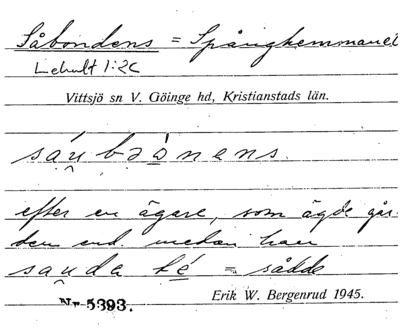 Såbondens = Spånghemmanet
Lehult 1:2C
Vittsjö sn V. Göinge hd, Kristianstads län.
sáu̯bəònens.
efter en ägare, som ägde går-
den end. medan han
sau̯da té = sådde
Erik W. Bergenrud 1945.
Nr 5393.